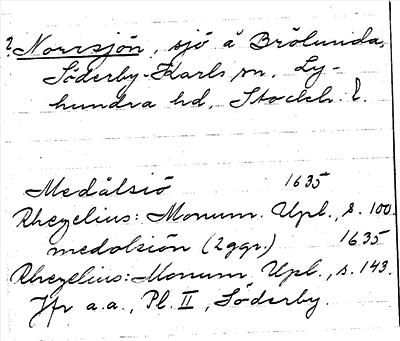 ? Norrsjön, sjö å Brölunda,
Söderby-Karls sn, Ly-
hundra hd, Stockh. l.
Medålsiö 1635
Rhezelius: Monum. Upl., s. 100.
medolsiön (2ggr.) 1635
Rhezelius: Monum. Upl., s. 143.
Jfr a.a., Pl. II, Söderby.